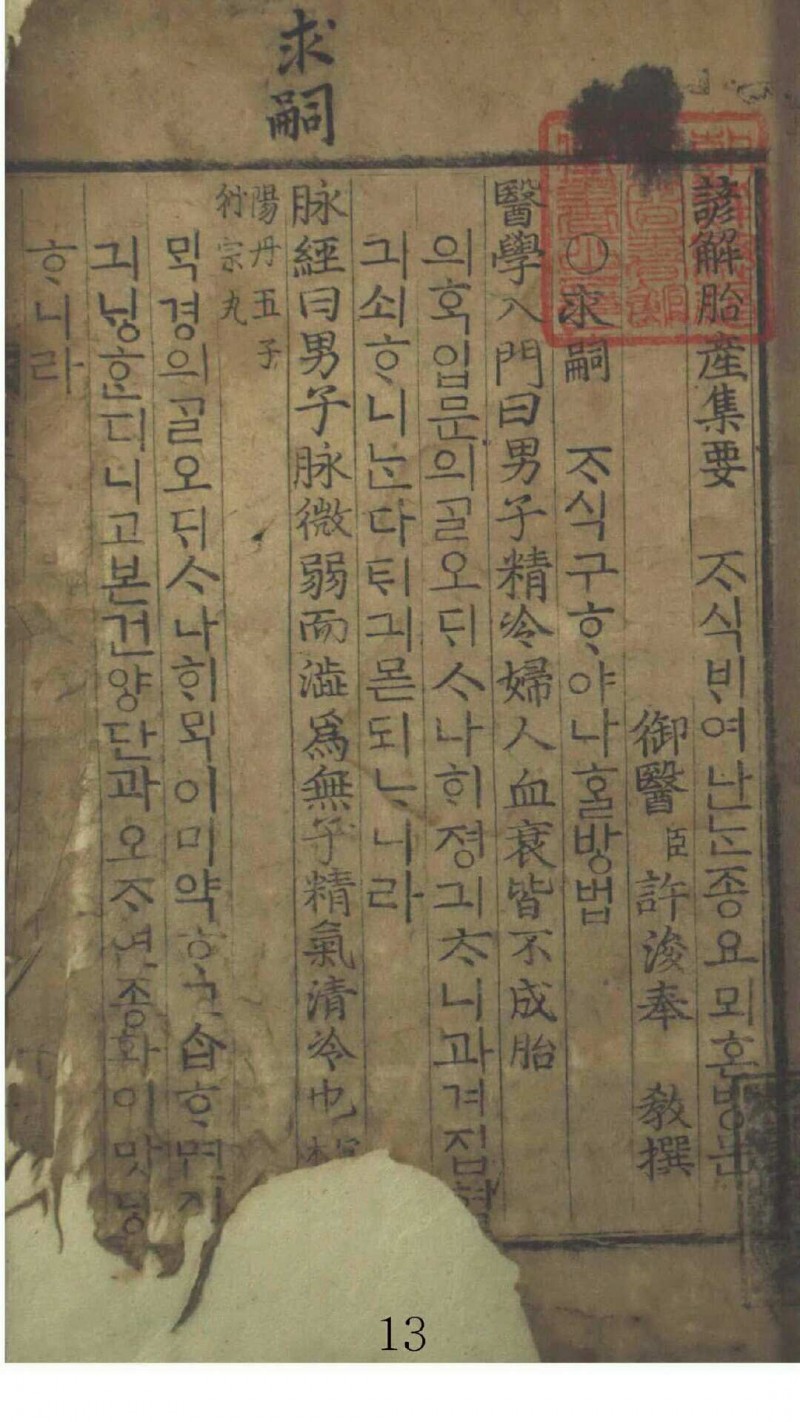 求嗣
諺解胎産集要 ᄌᆞ식ᄇᆡ여난ᄂᆞᆫ종요뫼혼방문
御醫 臣 許浚奉 敎撰
○求嗣 ᄌᆞ식구ᄒᆞ야나홀방법
醫學入門曰男子精冷婦人血衰皆不成胎
의ᄒᆞᆨ입문의ᄀᆞᆯ오ᄃᆡᄉᆞ나ᄒᆡ졍긔ᄎᆞ니과겨집혈
긔쇠ᄒᆞ니ᄂᆞᆫ다ᄐᆡ긔몯되ᄂᆞ니라
脉經曰男子脉微弱而澁爲無子精氣清冷也
陽丹五子
衍宗丸
ᄆᆡᆨ경의ᄀᆞᆯ오ᄃᆡᄉᆞ나ᄒᆡᄆᆡᆨ이미약ᄒᆞ고ᄉᆞᆸᄒᆞ면
긔닝ᄒᆞᆫ디니고본건양단과오ᄌᆞ연종환이맛당
ᄒᆞ니라
13